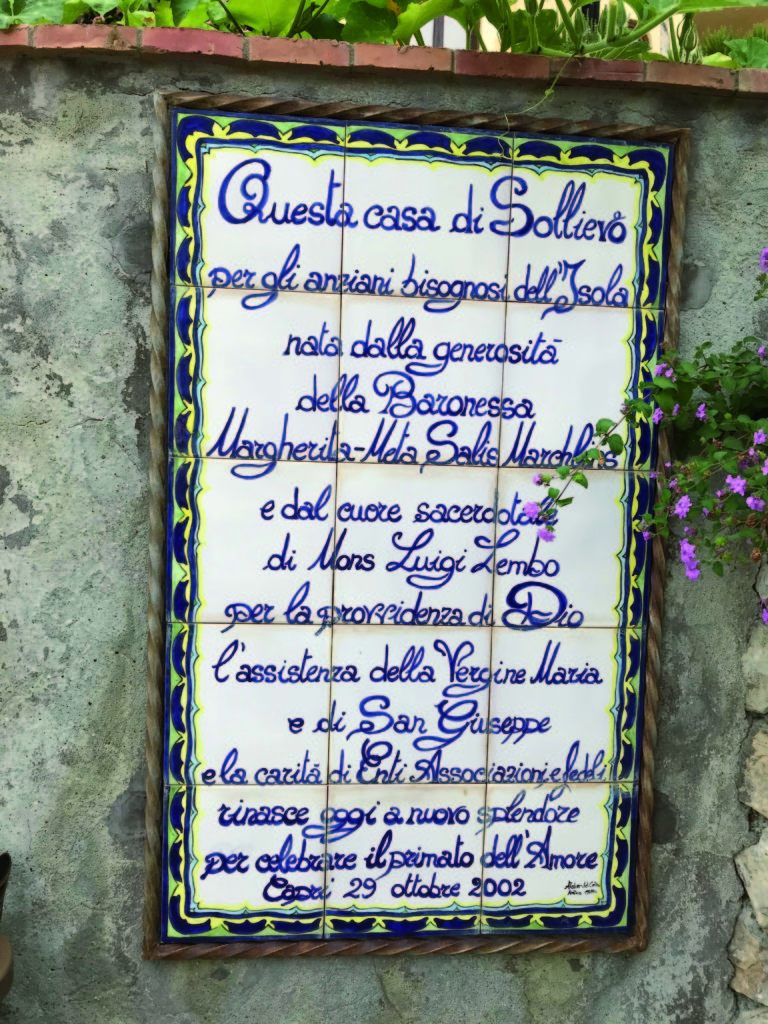 Questa casa di Sollievo
per gli anziani bisognosi dell'Isola
nata dalla generosità
della Baronessa
Margherita-Meta Salis Marchlins
e dal cuore sacerdotale
di Mons Luigi Lembo
per la provvidenza di Dio
l'assistenza della Vergine Maria
e di San Giuseppe
e la carità di Enti Associazioni e fedeli
rinasce oggi a nuovo splendore
per celebrare il primato dell'Amore
Capri 29 ottobre 2002